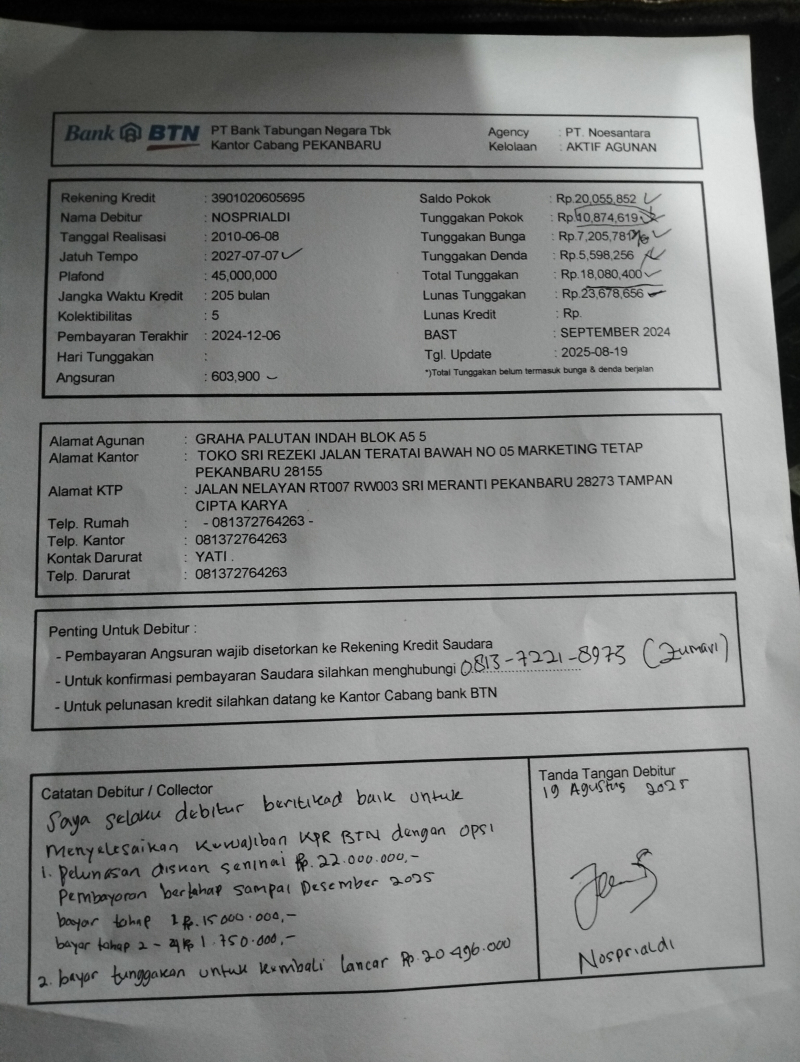 Bank BTN PT Bank Tabungan Negara Tbk
Kantor Cabang PEKANBARU
Agency : PT. Noesantara
Kelolaan : AKTIF AGUNAN
Rekening Kredit : 3901020605695
Nama Debitur : NOSPRIALDI
Tanggal Realisasi : 2010-06-08
Jatuh Tempo : 2027-07-07
Plafond : 45,000,000
Jangka Waktu Kredit : 205 bulan
Kolektibilitas : 5
Pembayaran Terakhir : 2024-12-06
Hari Tunggakan :
Angsuran : 603,900
Saldo Pokok : Rp.20,055,852
Tunggakan Pokok : Rp.10,874,619
Tunggakan Bunga : Rp.7,205,781
Tunggakan Denda : Rp.5,598,256
Total Tunggakan : Rp.18,080,400
Lunas Tunggakan : Rp.23,678,656
Lunas Kredit : Rp.
BAST : SEPTEMBER 2024
Tgl. Update : 2025-08-19
*)Total Tunggakan belum termasuk bunga & denda berjalan
Alamat Agunan : GRAHA PALUTAN INDAH BLOK A5 5
Alamat Kantor : TOKO SRI REZEKI JALAN TERATAI BAWAH NO 05 MARKETING TETAP
PEKANBARU 28155
Alamat KTP : JALAN NELAYAN RT007 RW003 SRI MERANTI PEKANBARU 28273 TAMPAN
CIPTA KARYA
Telp. Rumah : - 081372764263 -
Telp. Kantor : 081372764263
Kontak Darurat : YATI .
Telp. Darurat : 081372764263
Penting Untuk Debitur :
- Pembayaran Angsuran wajib disetorkan ke Rekening Kredit Saudara
- Untuk konfirmasi pembayaran Saudara silahkan menghubungi 0813-7221-8973 (Zumavi)
- Untuk pelunasan kredit silahkan datang ke Kantor Cabang bank BTN
Catatan Debitur / Collector
Saya selaku debitur beritikad baik untuk
Menyelesaikan Kewajiban KPR BTN dengan opsi
1. Pelunasan diskon seninai Rp.22.000.000,-
Pembayaran bertahap sampai Desember 2025
bayar tahap 1 Rp.15000.000,-
bayar tahap 2 - 4 Rp 1.750.000,-
2. bayar tunggakan untuk kembali lancar Rp.20 496.000
Tanda Tangan Debitur
19 Agustus 2025
Nosprialdi